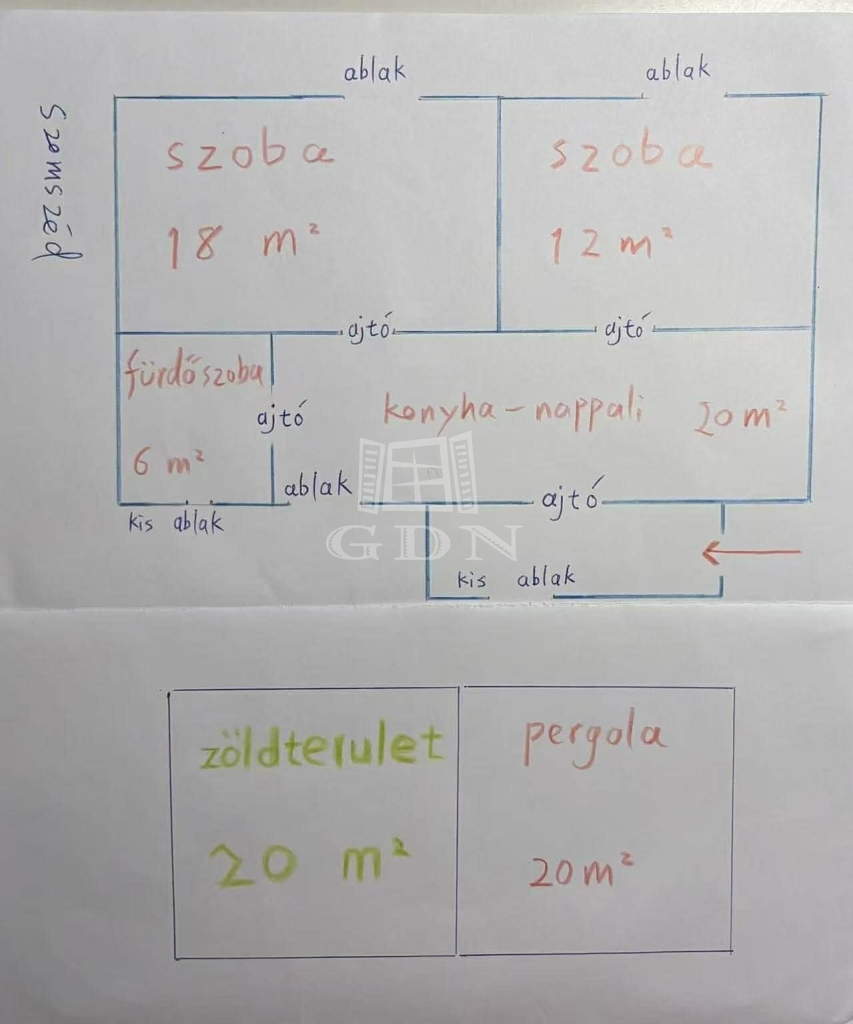 ablak
ablak
Szemszéd
szoba
szoba
18 m²
12 m²
ajtó
ajtó
fürdőszoba
ajtó
konyha - nappali
20 m²
6 m²
ablak
ajtó
kis ablak
GDN
kis ablak
zöldterulet
pergola
20 m²
20 m²